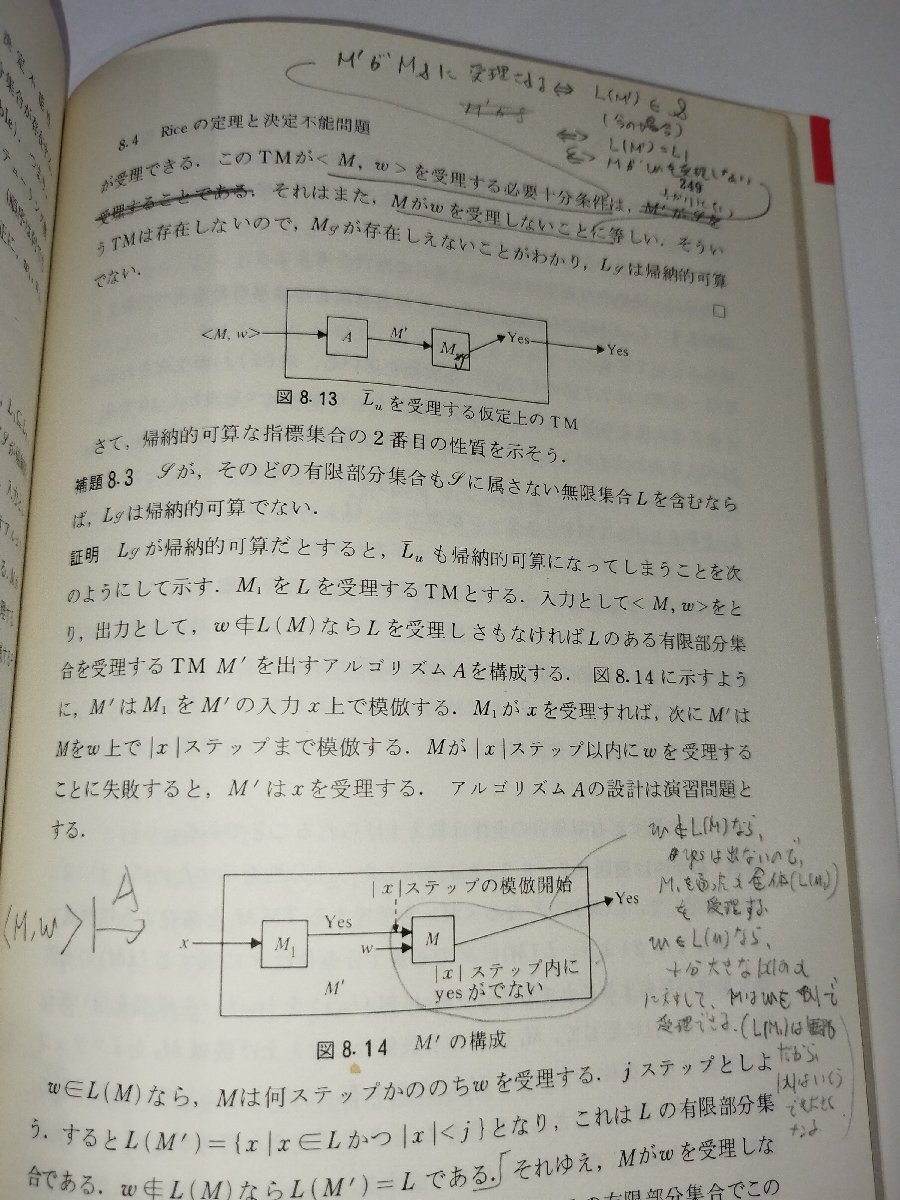 M'が
受理される ⇔ L(M') ∈
(今の場合)
⇔ L(M')=L₁
⇔ Mがwを受理しない
8.4 Riceの定理と決定不能問題
249
が受理できる．このTMが< M, w >を受理する必要十分条件は，M'が𝒮を
受理することである．それはまた，Mがwを受理しないことに等しい．そうい
うTMは存在しないので，M𝒮が存在しえないことがわかり，L𝒮は帰納的可算
でない．
□
<M, w>
A
M'
M𝒮
Yes
Yes
図8･13 L̄uを受理する仮定上のTM
さて，帰納的可算な指標集合の2番目の性質を示そう．
補題8.3 𝒮が，そのどの有限部分集合も𝒮に属さない無限集合Lを含むなら
ば，L𝒮は帰納的可算でない．
証明 L𝒮が帰納的可算だとすると，L̄uも帰納的可算になってしまうことを次
のようにして示す．M₁をLを受理するTMとする．入力として< M, w>をと
り，出力として，w∉L(M)ならLを受理しさもなければLのある有限部分集
合を受理するTM M'を出すアルゴリズムAを構成する．図8.14に示すよう
に，M'はM₁をM'の入力x上で模倣する．M₁がxを受理すれば，次にM'は
Mをw上で|x|ステップまで模倣する．Mが|x|ステップ以内にwを受理する
ことに失敗すると，M'はxを受理する．アルゴリズムAの設計は演習問題と
する．
w∉L(M)なら，
yesは出ないので，
全体(L(M₁))
を受理する
w∈L(M)なら，
十分大きな|x|のx
に対して，Mはwを
受理できる．(L(M₁)は
だから
|x|はいくら
でも大きく
なる
<M, w>
A
|x|ステップの模倣開始
x
M₁
Yes
w
M
Yes
|x|ステップ内に
yesがでない
M'
図8･14 M'の構成
w∈L(M)なら，Mは何ステップかののちwを受理する．jステップとしよ
う．するとL(M')={x|x∈Lかつ|x|<j}となり，これはLの有限部分集
合である．w∉L(M)ならL(M')=Lである．それゆえ，Mがwを受理しな
の有限部分集合でこの